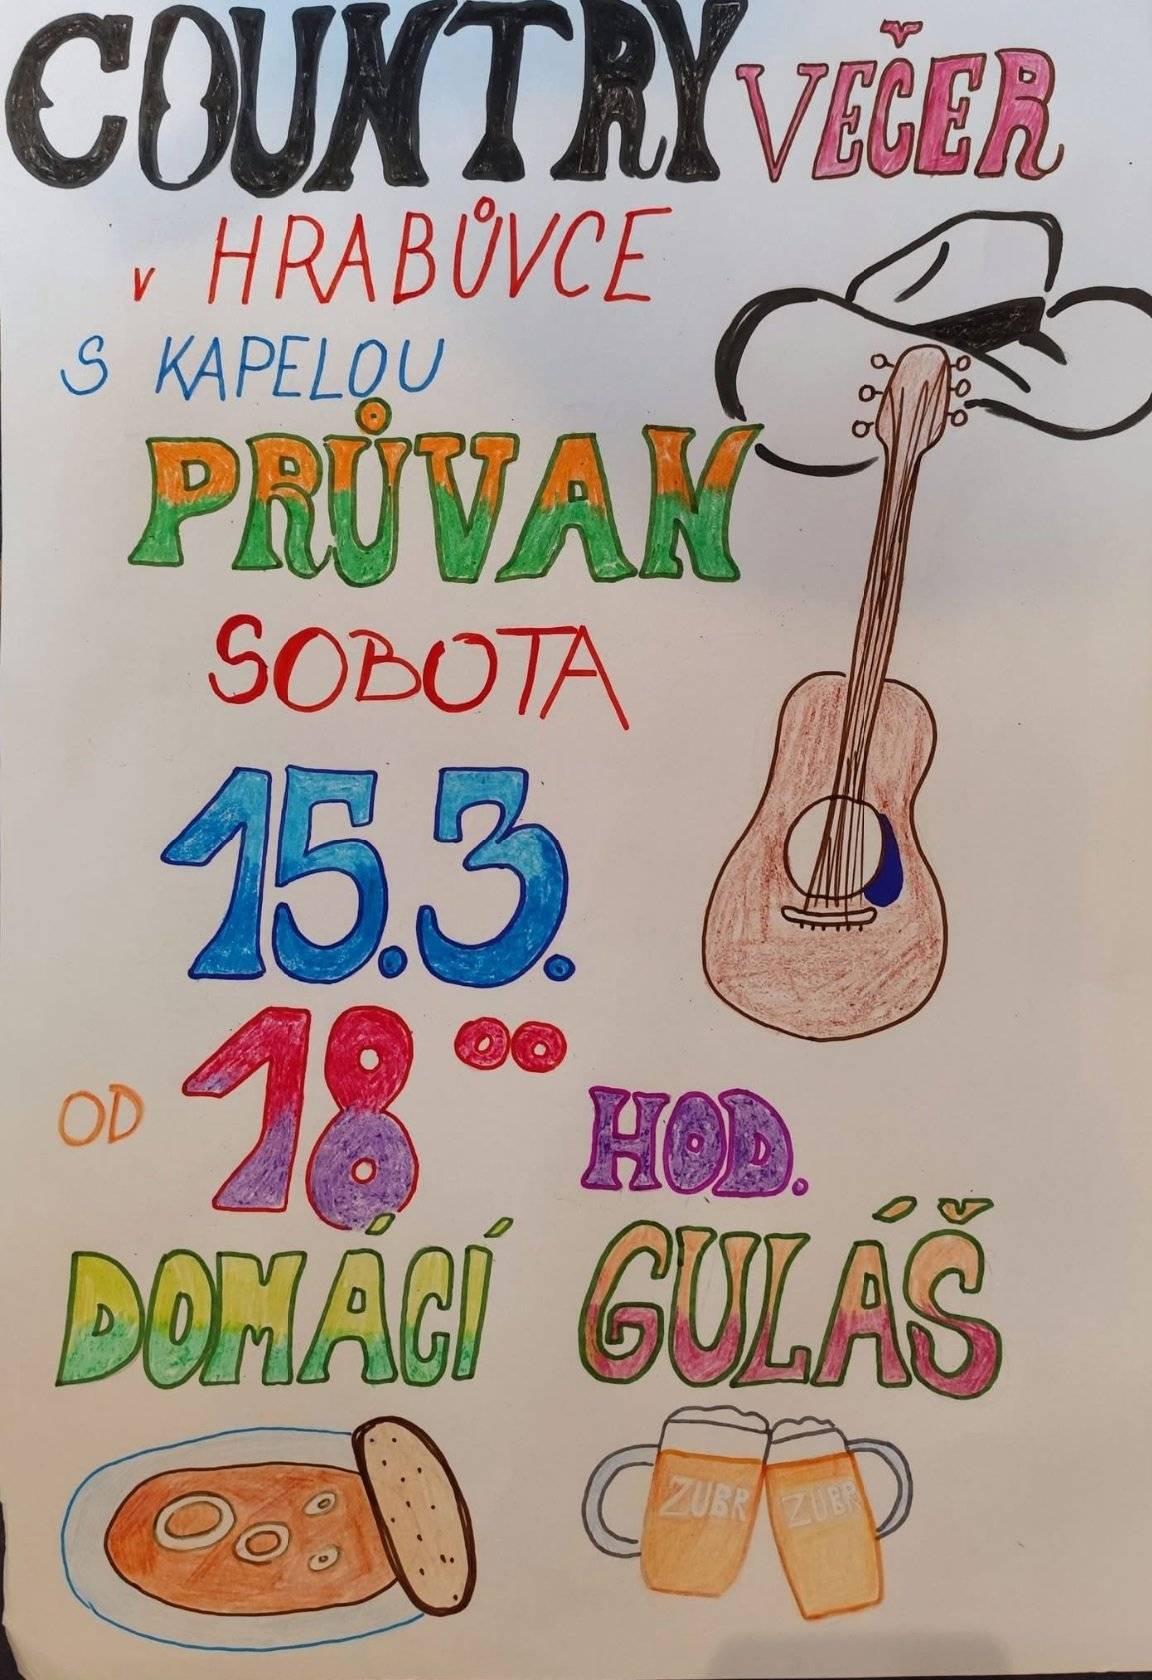 COUNTRY VEČER
v HRABŮVCE
S KAPELOU
PRŮVAN
SOBOTA
15.3.
OD 18°° HOD.
DOMÁCÍ GULÁŠ
ZUBR ZUBR